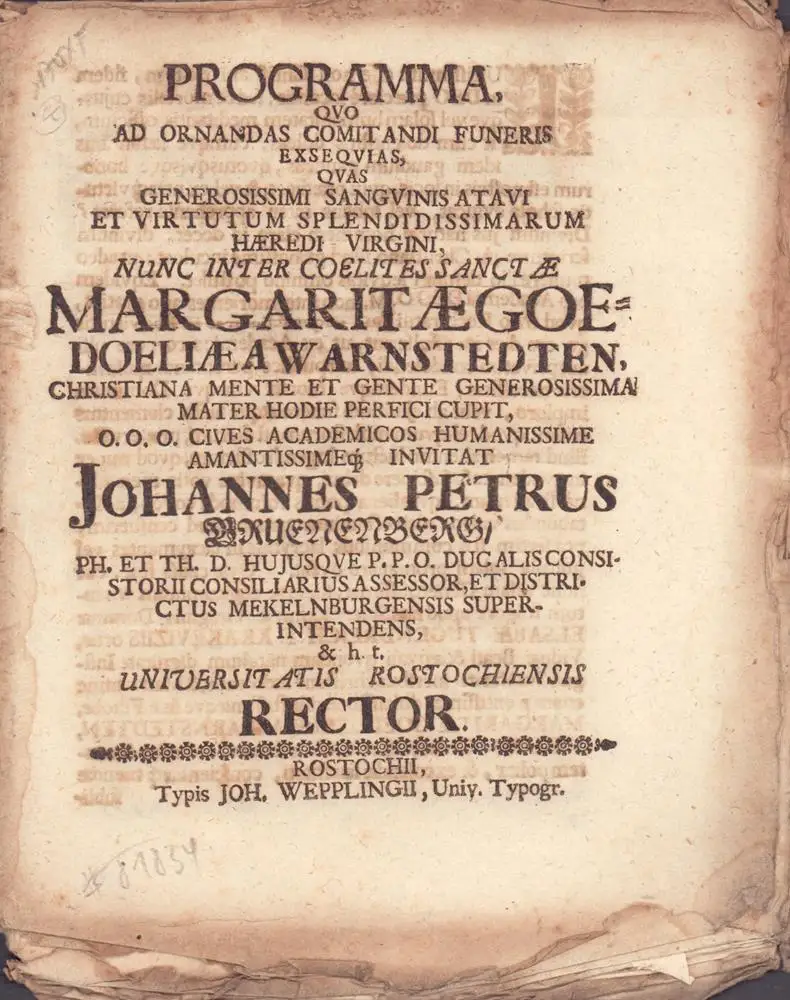 PROGRAMMA,
QVO
AD ORNANDAS COMITANDI FUNERIS
EXSEQVIAS,
QVAS
GENEROSISSIMI SANGVINIS ATAVI
ET VIRTUTUM SPLENDIDISSIMARUM
HÆREDI VIRGINI,
NUNC INTER COELITES SANCTÆ
MARGARITÆ GOE=
DOELIÆ A WARNSTEDTEN,
CHRISTIANA MENTE ET GENTE GENEROSISSIMA
MATER HODIE PERFICI CUPIT,
O. O. O. CIVES ACADEMICOS HUMANISSIME
AMANTISSIMEq; INVITAT
JOHANNES PETRUS
GRUENENBERG/
PH. ET TH. D. HUJUSQVE P. P. O. DUCALIS CONSI-
STORII CONSILIARIUS ASSESSOR, ET DISTRI-
CTUS MEKELNBURGENSIS SUPER-
INTENDENS,
& h. t.
UNIVERSITATIS ROSTOCHIENSIS
RECTOR.
ROSTOCHII,
Typis JOH. WEPPLINGII, Univ. Typogr.